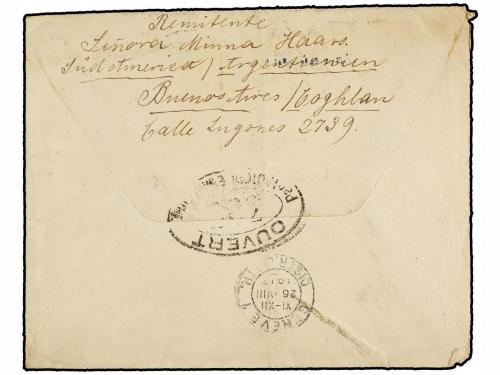 Remitente
Señora Minna Haars.
Südamerica / Argentinien
Buenos Aires / Coghlan
Calle Lugones 2739.
OUVERT
GENÈVE 1
XI-XII
26.VIII